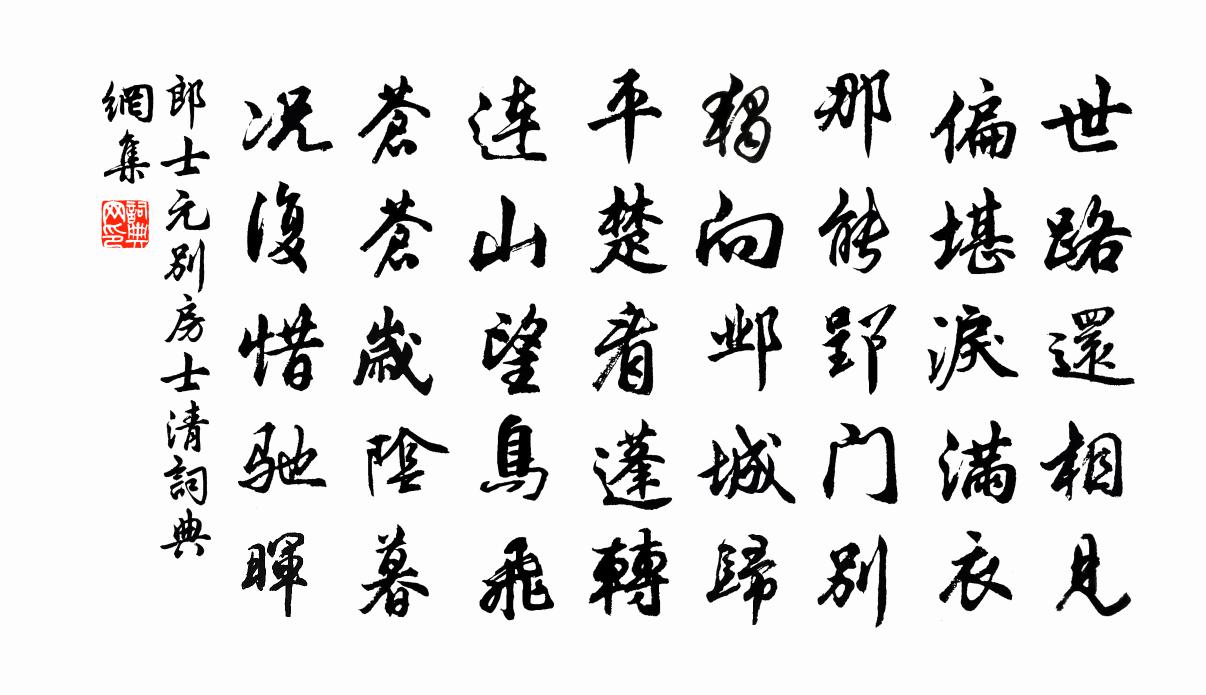 世路還相見
偏堪淚滿衣
那能郢门別
獨向邺城歸
平楚看蓬轉
连山望鳥飛
蒼蒼歲陰暮
况復惜馳暉
郎士元别房士清詞典
網集
詞典网印